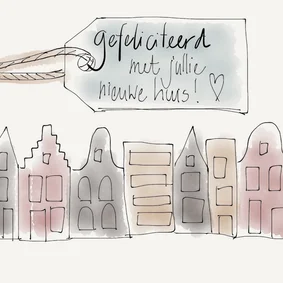 gefeliciteerd
met jullie
nieuwe huis!